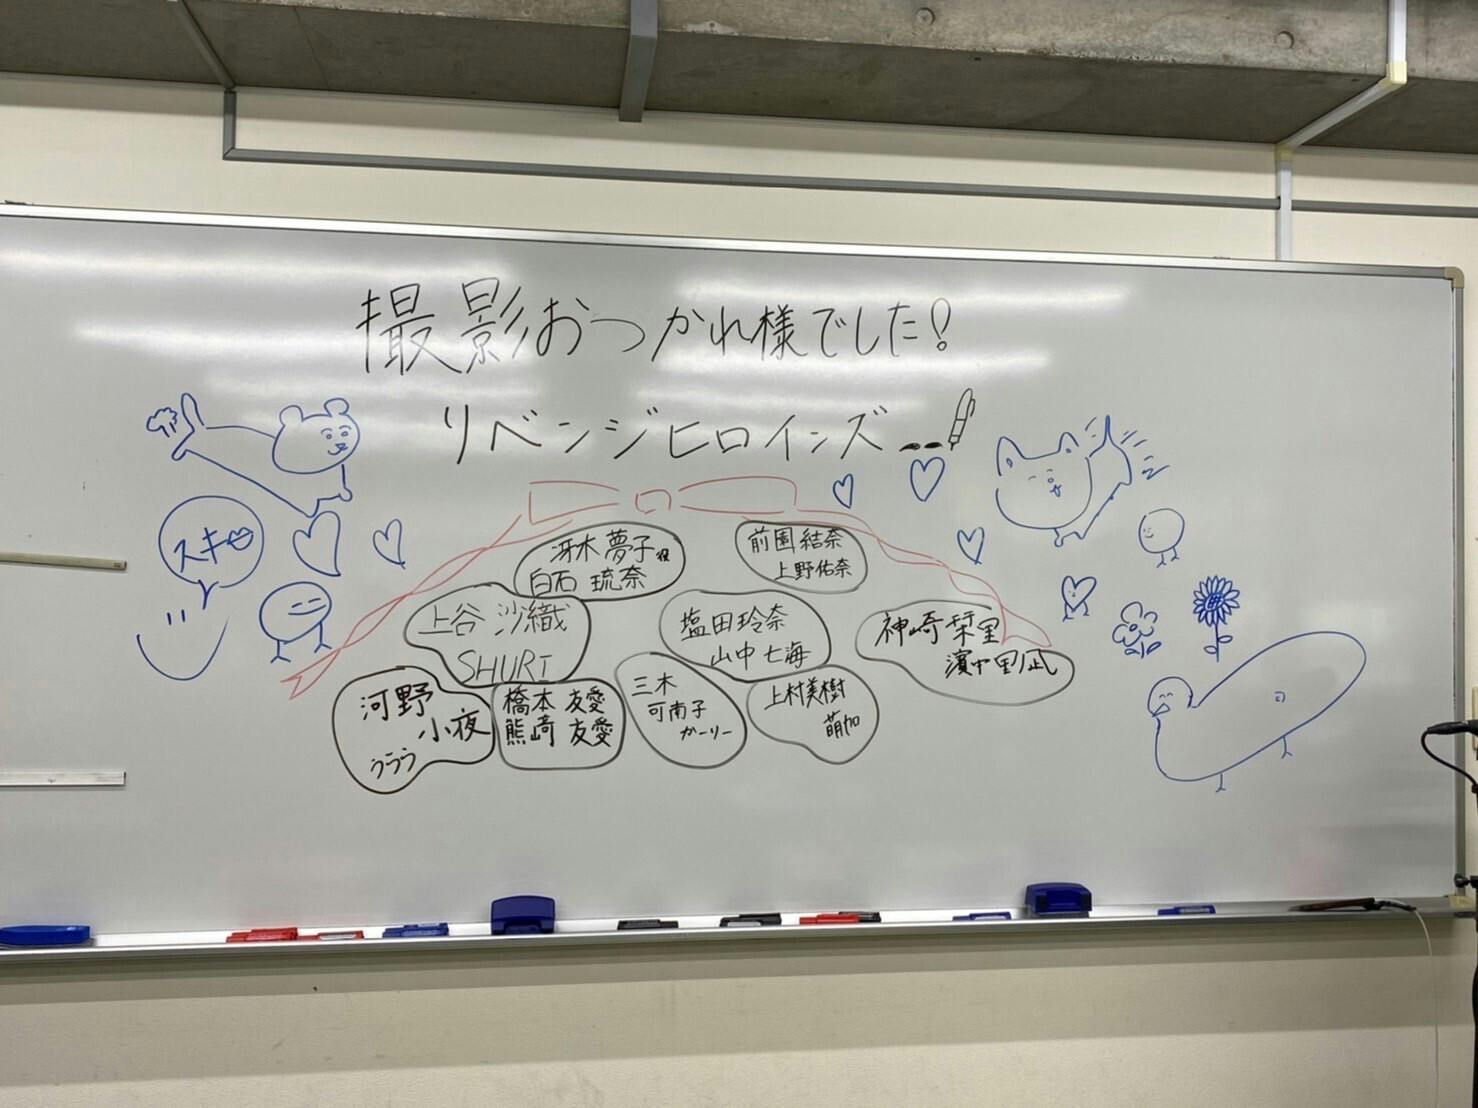 撮影おつかれ様でした！
リベンジヒロインズ
スキ
冴木 夢子 役
白石 琉奈
前園 結奈
上野佑奈
上谷 沙織
SHURI
塩田玲奈
山中七海
神崎 栞里
濱中 野凪
河野
小夜
うらら
橋本 友愛
熊崎 友愛
三木
可南子
かーりー
上村美樹
萌加